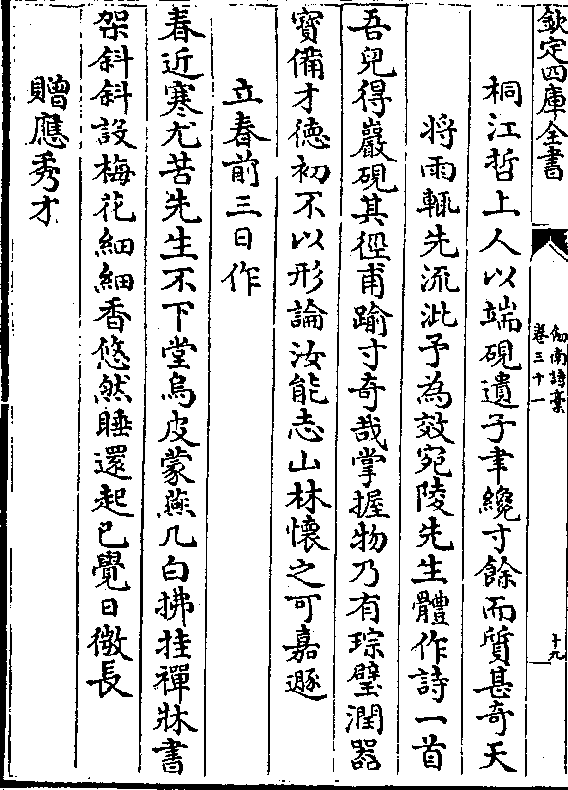 欽定四庫全書
劒南詩稾
卷三十一
十九
桐江哲上人以端硯遺子聿纔寸餘而質甚奇天
將雨輒先流泚予為效宛陵先生體作詩一首
吾兒得巖硯其徑甫踰寸奇哉掌握物乃有琮璧潤器
寳備才徳初不以形論汝能志山林懷之可嘉遯
立春前三日作
春近寒尤苦先生不下堂烏皮蒙燕几白拂挂禪牀書
架斜斜設梅花細細香悠然睡還起已覺日微長
贈應秀才